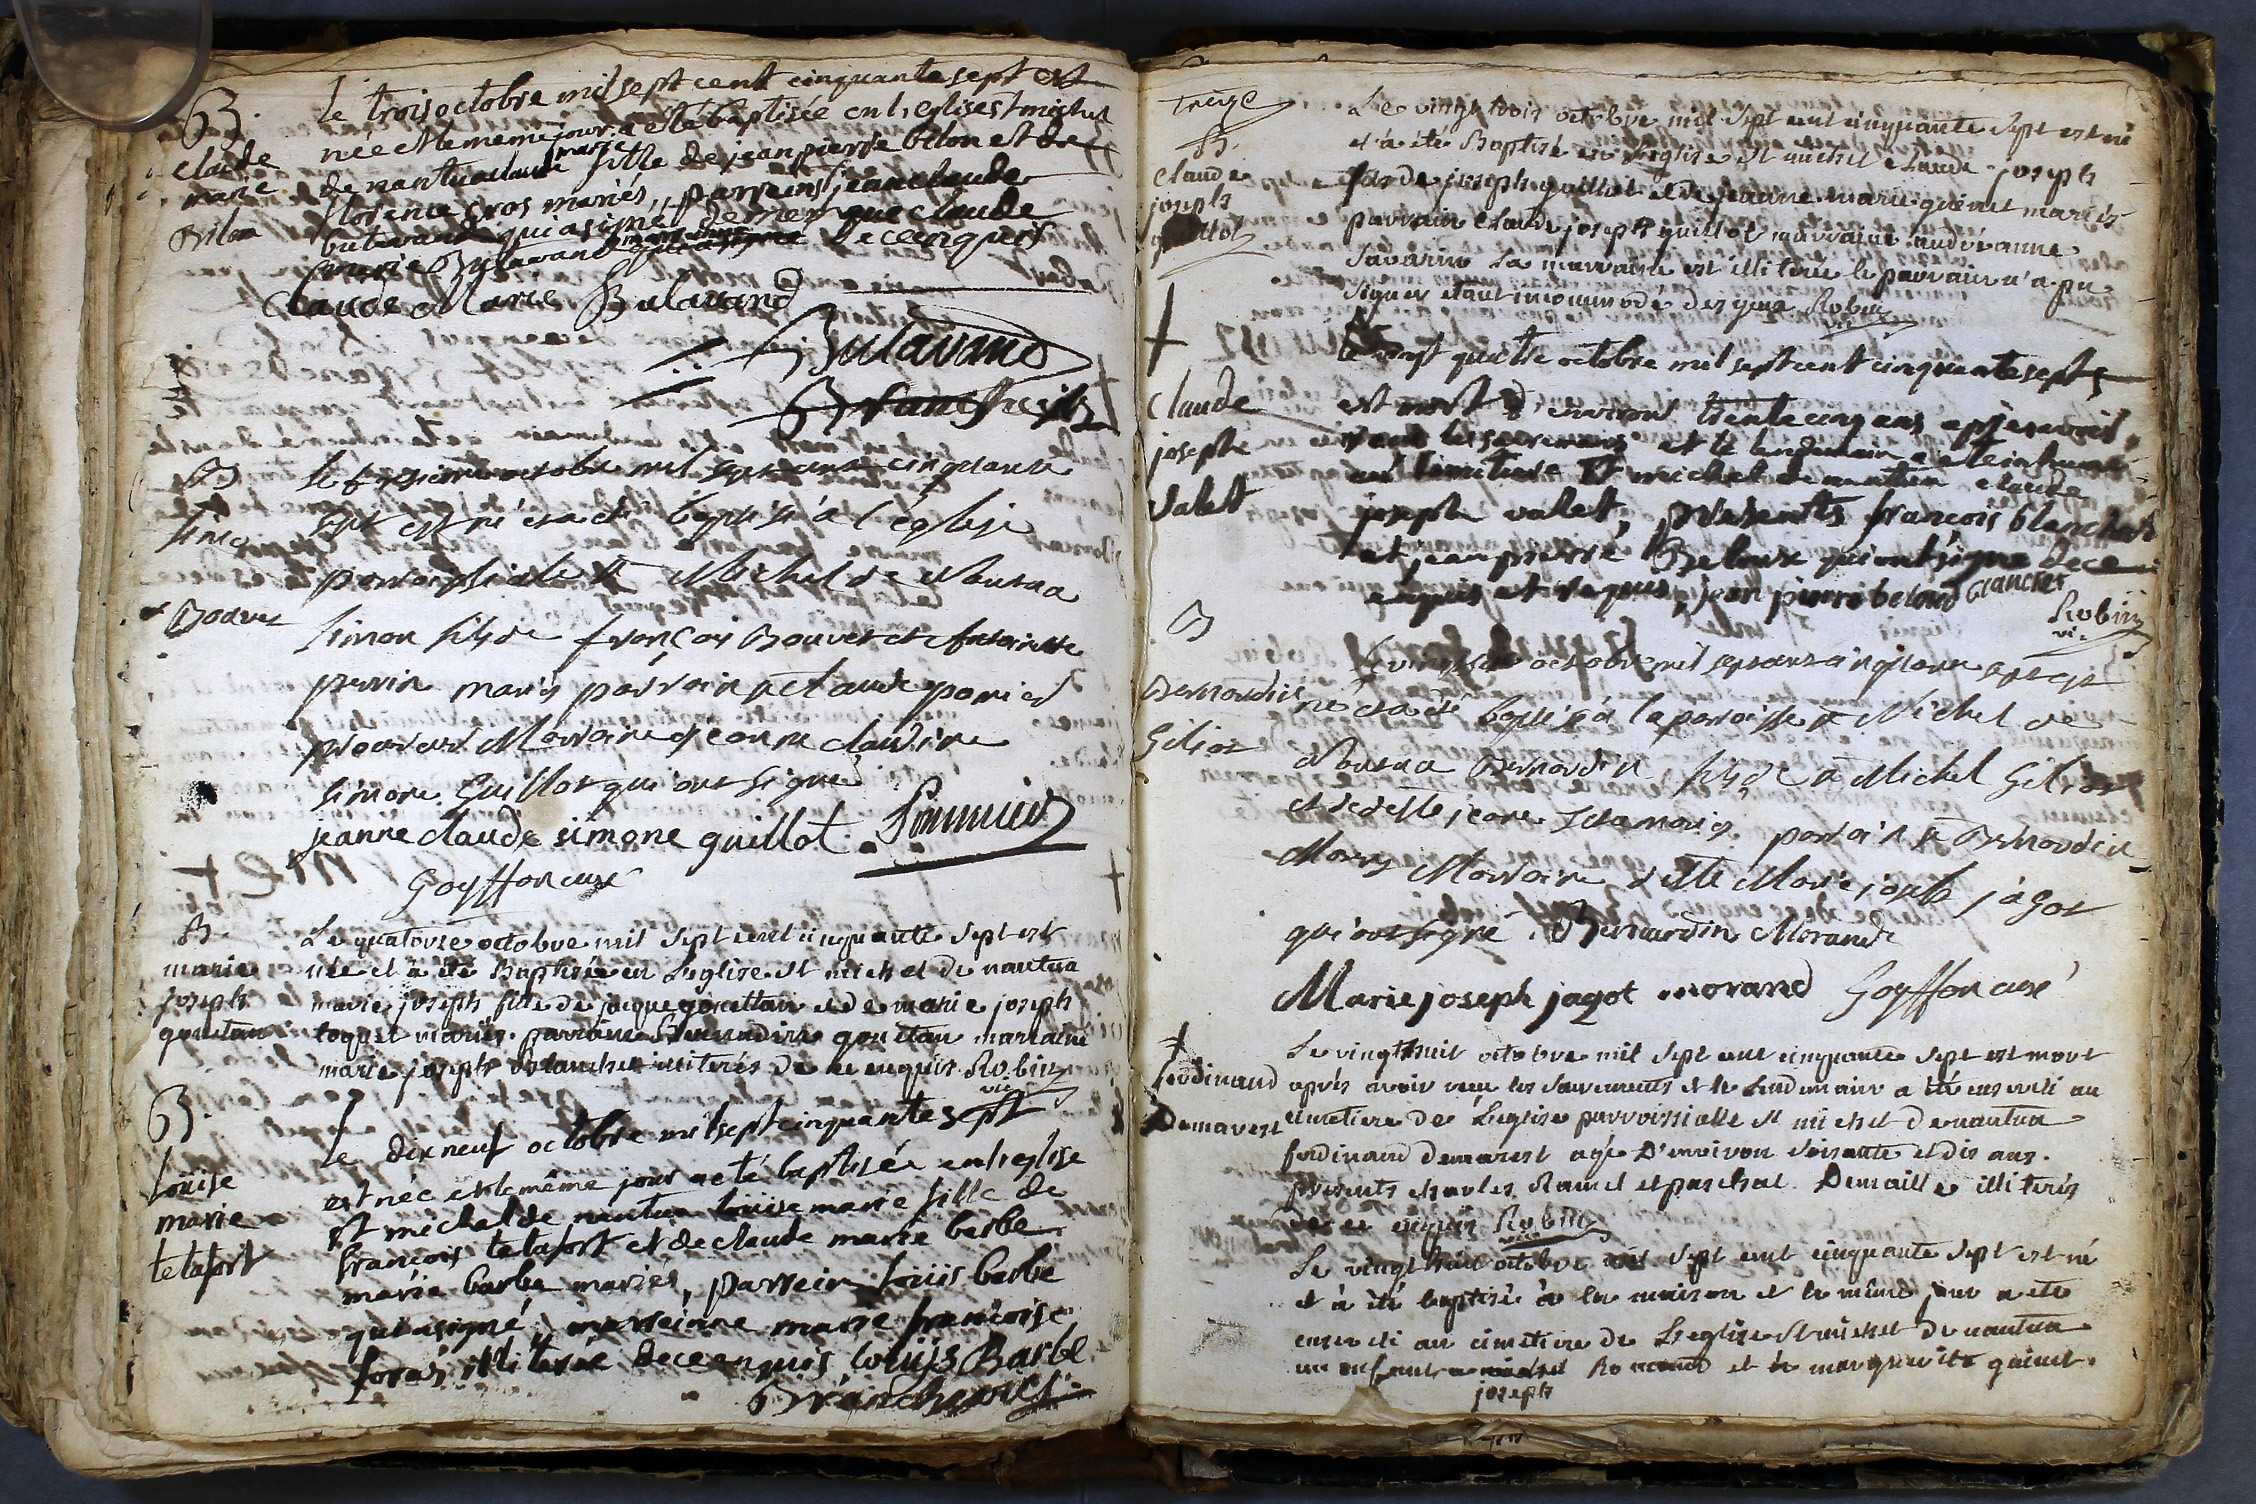 B.
claude
marie
Bilon
le trois octobre mil sept cent cinquante sept est
née et le meme jour a esté baptisée en l'eglise st michel
de nantua claude marie fille de jean pierre bilon et de
florence gros mariés, parrein jean claude
butavand qui a signé de meme que claude
marie Butavand marreine de ce enquis
Claude Marie Butavand
Butavand
B
simon
Bouvet
le treisieme octobre mil sept cent cinquante
sept est né et a été baptisé a l'église
parroissiale st Michel de Nantua
simon fils de françois Bouvet et Antoinette
perrin mariés parrain sr claude
procureur Marraine jeanne claudine
simone Guillot qui ont signé
jeanne claude simone guillot.
Goyffon curé
B.
marie
joseph
gouttan
Le quatorse octobre mil sept cent cinquante sept est
née et a été Baptisée en L'eglise st michel de nantua
marie joseph fille de jacque gouettan et de marie joseph
toquet mariés. parrain gouttan marraine
marie joseph Blanchet illiterés de ce enquis Robin
vic
B.
Loüise
marie
telafort
le dix neuf octobre mil sept cinquante sept
est née et le même jour a eté baptisée en l'eglise
st michel de nantua loüise marie fille de
françois telafort et de claude marie barbe
marie barbe mariés, parrein loüis barbe
qui a signé, marreinne marie françoise
illiterée de ce enquis louijs Barbe
treize
B.
claude
joseph
guillot
Le vingt trois octobre mil sept cent cinquante sept est né
et a été Baptisé en L'eglise st michel claude joseph
fils de joseph guillot et de jeanne marie guenet mariés
parrain claude joseph guillot marraine andréanne
Savarin La marraine est illiterée le parrain n'a pu
signer etant incommodé des yeux Robin
vic
†
claude
josephe
valet
le vingt quatre octobre mil sept cent cinquante sept
est mort d'environ trente cinq ans apres avoir
receu les sacremens et le lendemain a eté inhumé
au cimetiere st michel de nantua claude
joseph valet, presents françois blanchet
et jean pierre Beloux qui ont signé de ce
enquis et requis, jean pierre beloud blanchet
Robin
vic.
B
Bernardin
Gelios
octobre mil sept cent cinquante sept est
né et a été baptisé a la paroisse st Michel de
Nantua Bernardin fils de sr Michel
et de delle jeane mariés. parrain sr Bernardin
Marraine delle Marie joseph jagot
qui ont signé. Bernardin Morand
Marie joseph jagot morand Goyffon curé
†
ferdinand
Demarest
Le vingt huit octobre mil sept cent cinquante sept est mort
après avoir reçu les sacrements et le lendemain a été enseveli au
cimetiere de L'eglise parroissialle st michel de nantua
ferdinand demarest agé D'environ soisante et dis ans.
presents charles Ramel et paschal Demaille illiterés
de ce enquis Robin
vic
Le vingt huit octobre mil sept cent cinquante sept est né
et a été baptisé à la maison et le même jour a ete
enseveli au cimetiere de L'eglise St michel de nantua
un enfant a et a marguerite guinet.
joseph